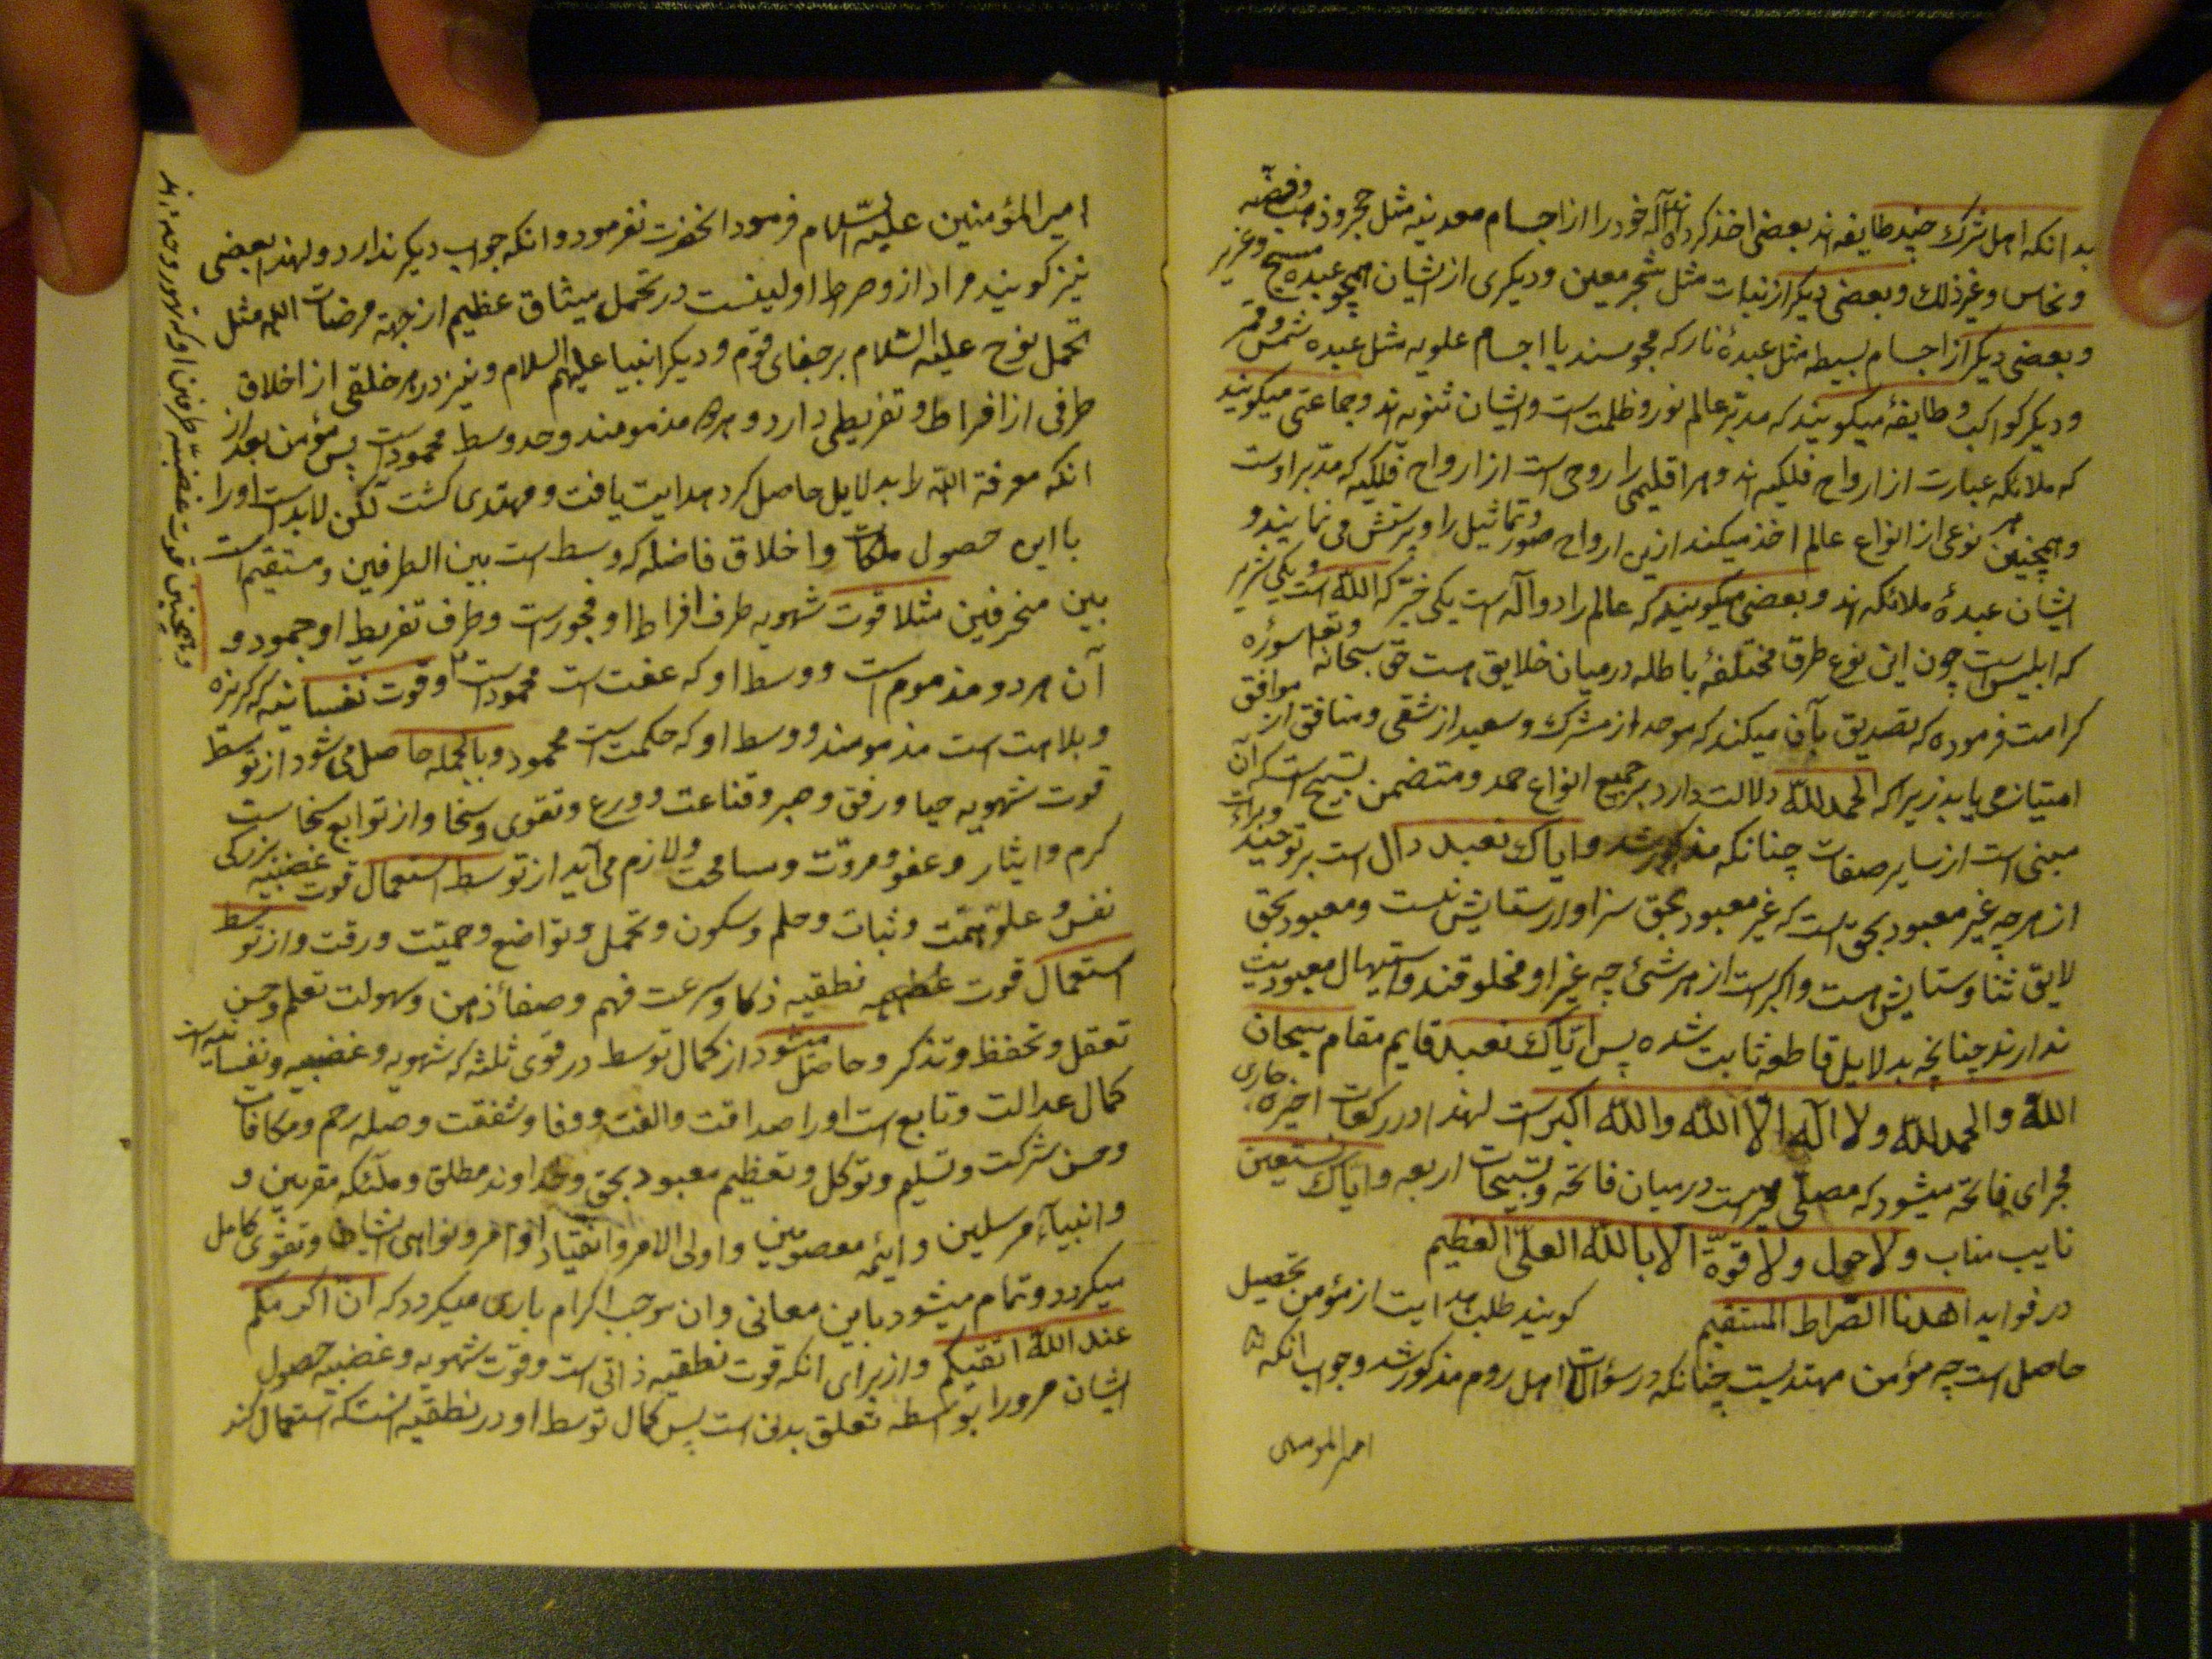 بدانکه اهل شرک چند طایفه اند بعضی اخذ کرده اند آله خود را از اجسام معدنیه مثل حجر و ذهب و فضه
و نحاس و غیر ذلک و بعضی دیگر از نبات مثل شجر معین و دیگری از انسان همچو عبده مسیح و عزیر
و بعضی دیگر از اجسام بسیطه مثل عبدۀ نار که مجوسند یا اجسام علویه مثل عبده شمس و قمر
و دیگر کواکب و طایفۀ میگویند که مدبّر عالم نور و ظلمت است و ایشان ثنویه اند و جماعتی میگویند
که ملائکه عبارت از ارواح فلکیه اند و هر اقلیمی را روحی است از ارواح فلکیه که مدبّر اوست
و همچنین هر نوعی از انواع عالم اخذ میکنند ازین ارواح صور و تماثیل را و پرستش می نمایند و
ایشان عبدۀ ملائکه اند و بعضی میگویند که عالم را دو آله است یکی خیّر که الله است و یکی شریر
که ابلیس است چون این نوع طرق مختلفۀ باطله در میان خلایق هست حق سبحانه و تعالی سورۀ
کرامت فرموده که تصدیق بآن میکند که موحد از مشرک و سعید از شقی و منافق از موافق
امتیاز می یابد زیرا که الحمدلله دلالت دارد بر جمیع انواع حمد و متضمن تسبیح است که آن
مبنی است از سایر صفات چنانکه مذکور شد و ایاک نعبد دال است بر توحید و براءت
از هر چه غیر معبود بحق است که غیر معبود بحق سزاوار ستایش نیست و معبود بحق
لایق ثنا و ستایش است و اکبر است از هر شئ چه غیر او مخلوقند و استیهال معبودیت
ندارند چنانچه بدلایل قاطعه ثابت شده پس ایّاک نعبد قایم مقام سبحان
الله و الحمدلله و لا اله الا الله والله اکبر است لهذا در رکعات اخیره جاری
مجرای فاتحه میشود که مصلّی مخیر است در میان فاتحه و تسبیحات اربعه و ایاک نستعین
نایب مناب و لا حول و لا قوة الا بالله العلیّ العظیم
در فواید اهدنا الصّراط المستقیم گویند طلب هدایت از مؤمن تحصیل
حاصل است چه مؤمن مهتدیست چنانکه در سؤالات اهل روم مذکور شد و جواب آنکه
امیرالمومنین
امیر المؤمنین علیه السّلام فرمود آنحضرت نفرمود و آنکه جواب دیگر ندارد و لهذا بعضی
نیز گویند مراد ازو صراط اولینست در تحمل میثاق عظیم از جهة مرضات الله مثل
تحمل نوح علیه السّلام بر جفای قوم و دیگر انبیا علیهم السلام و نیز در هر خلقی از اخلاق
طرفی از افراط و تفریطی دارد و هر دو مذمومند و حد وسط محمود است پس مؤمن بعد از
آنکه معرفة الله را بدلایل حاصل کرد هدایت یافت و مهتدی کشت لکن لابد است او را
با این حصول ملکات و اخلاق فاضله که وسط است بین الطرفین و مستقیم است
بین منحرفین مثلا قوت شهویه طرف افراط او فجور است و طرف تفریط او جمود و
آن هر دو مذموم است و وسط او که عفت است محمود است و قوت نفسانیه که کربزه
و بلاهت است مذمومند و وسط او که حکمت است محمود و بالجمله حاصل می شود از توسط
قوت شهویه حیا و رفق و صبر و قناعت و ورع و تقوی و سخا و از توابع سخاست
کرم و ایثار و عفو و مروّت و مسامحت و لازم می آید از توسط استعمال قوت غضبیه بزرکی
نفس و علوّ همّت و ثبات و حلم و سکون و تحمل و تواضع و حمیّت و رقت و از توسط
استعمال قوت نطقیه ذکا و سرعت فهم و صفاء ذهن و سهولت تعلم و حسن
تعقل و تحفظ و تذکر و حاصل میشود از کمال توسط در قوی ثلثه که شهویه و غضبیه و نفسانیه است
کمال عدالت و تابع است او را صداقت و الفت و وفا و شفقت و صله رحم و مکافات
و حسن شرکت و تسلیم و توکل و تعظیم معبود بحق و خداوند مطلق و ملئکه مقربین و
و انبیآء مرسلین و ایمه معصومین و اولی الامر و انقیاد اوامر و نواهی ایشان و تقوی کامل
میکردد و تمام میشود باین معانی و ان موجب اکرام باری میکردد که ان اکرمکم
عند الله اتقیکم و از برای آنکه قوت نطقیه ذاتی است و قوت شهویه و غضبیه حصول
ایشان مرو را بواسطه تعلق بدن است پس کمال توسط او در نطقیه انست که استعمال کند
و همچنین قوت غضبیّه طرفین او که تهور و جبن اند